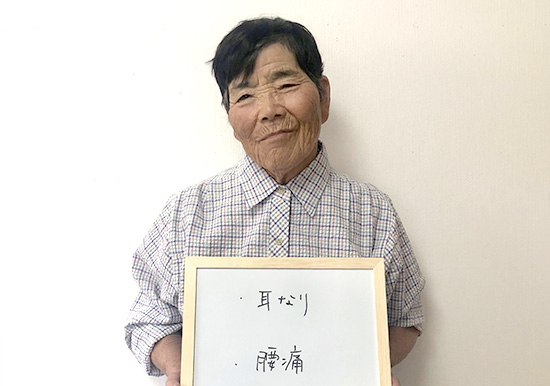 ・耳なり
・腰痛